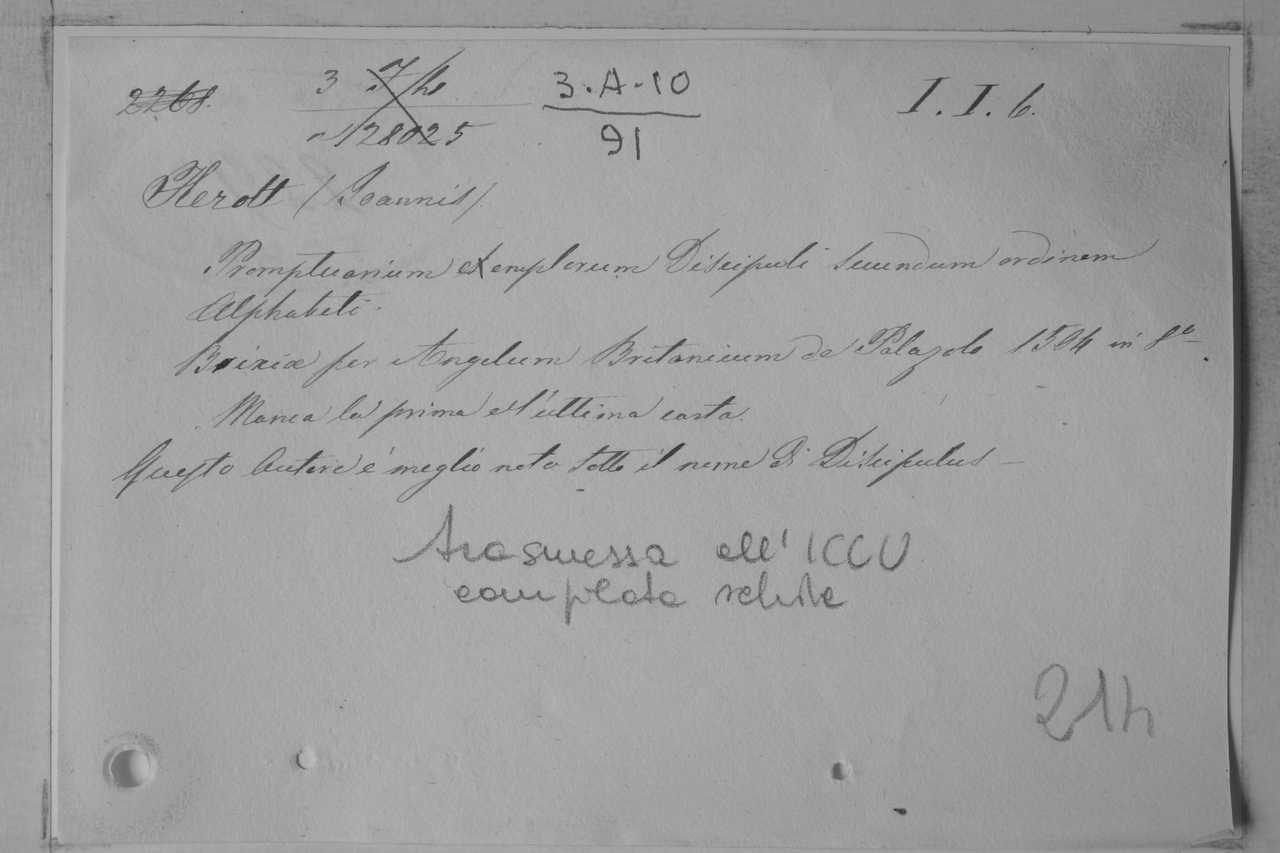 2268. 3 3.A.10 I. I. 6.
128025 91
Herolt (Joannis)
Promptuarium exemplorum Discipuli secundum ordinem
Alphabeti.
Brixiæ per Angelum Britanicum de Palazolo 1504 in 8º.
Manca la prima e l'ultima carta.
Questo Autore é meglio noto sotto il nome di Discipulus
Trasmessa all'ICCU
compilata schede
214